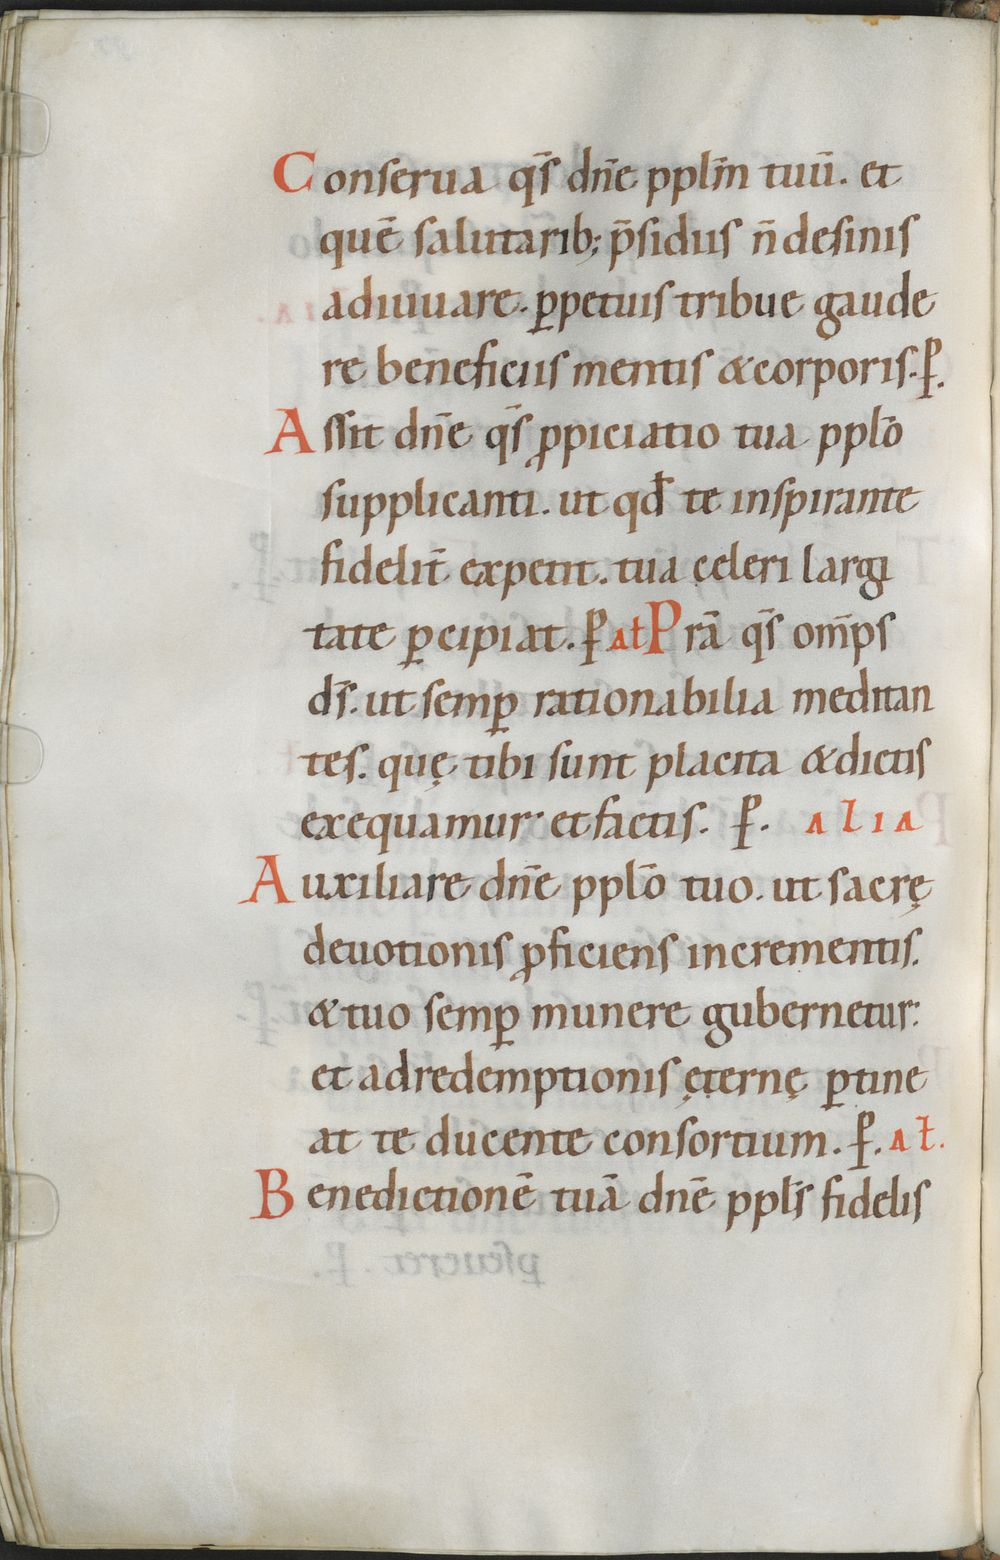 Conserua qs̄ dn̄e pplm̄ tuū. et
quē salutarib; p̄sidiis n̄ desinis
adiuuare. ꝑpetuis tribue gaude
re beneficiis mentis & corporis. ꝑ.
Assit dn̄e qs̄ ꝓpiciatio tua pplō
supplicanti. ut qđ te inspirante
fidelit̄ expetit. tua celeri largi
tate ꝑcipiat. ꝑ al̄ Prā qs̄ om̄ps
ds̄. ut semꝑ rationabilia meditan
tes. quę tibi sunt placita & dictis
exequamur et factis. ꝑ. alia
Auxiliare dn̄e pplō tuo. ut sacrę
deuotionis ꝓficiens incrementis.
& tuo semꝑ munere gubernetur:
et ad redemptionis ęternę ꝑtine
at te ducente consortium. ꝑ. al̄.
Benedictionē tuā dn̄e ppls̄ fidelis